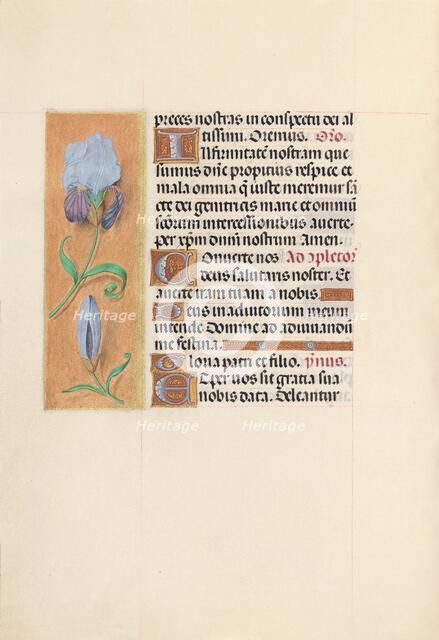 preces nostras in conspectu dei al
tissimi. Oremus. Oro.
Infirmitatē nostram que
sumus dñe propitius respice et
mala omnia q̄ iuste meremur sā
cte dei genitricis marie et omniū
sctorum intercessionibus auerte.
per xp̄m dñm nostrum Amen.
Conuerte nos Ad cpletor̄
deus salutaris noster. Et
auerte iram tuam a nobis
Deus in adiutorium meum
intende Domine ad adiuuandū
me festina.
Gloria patri et filio. ymnus.
Et per uos sit gratia sua
nobis data. Deleantur
Heritage
Heritage
Heritage
Heritage